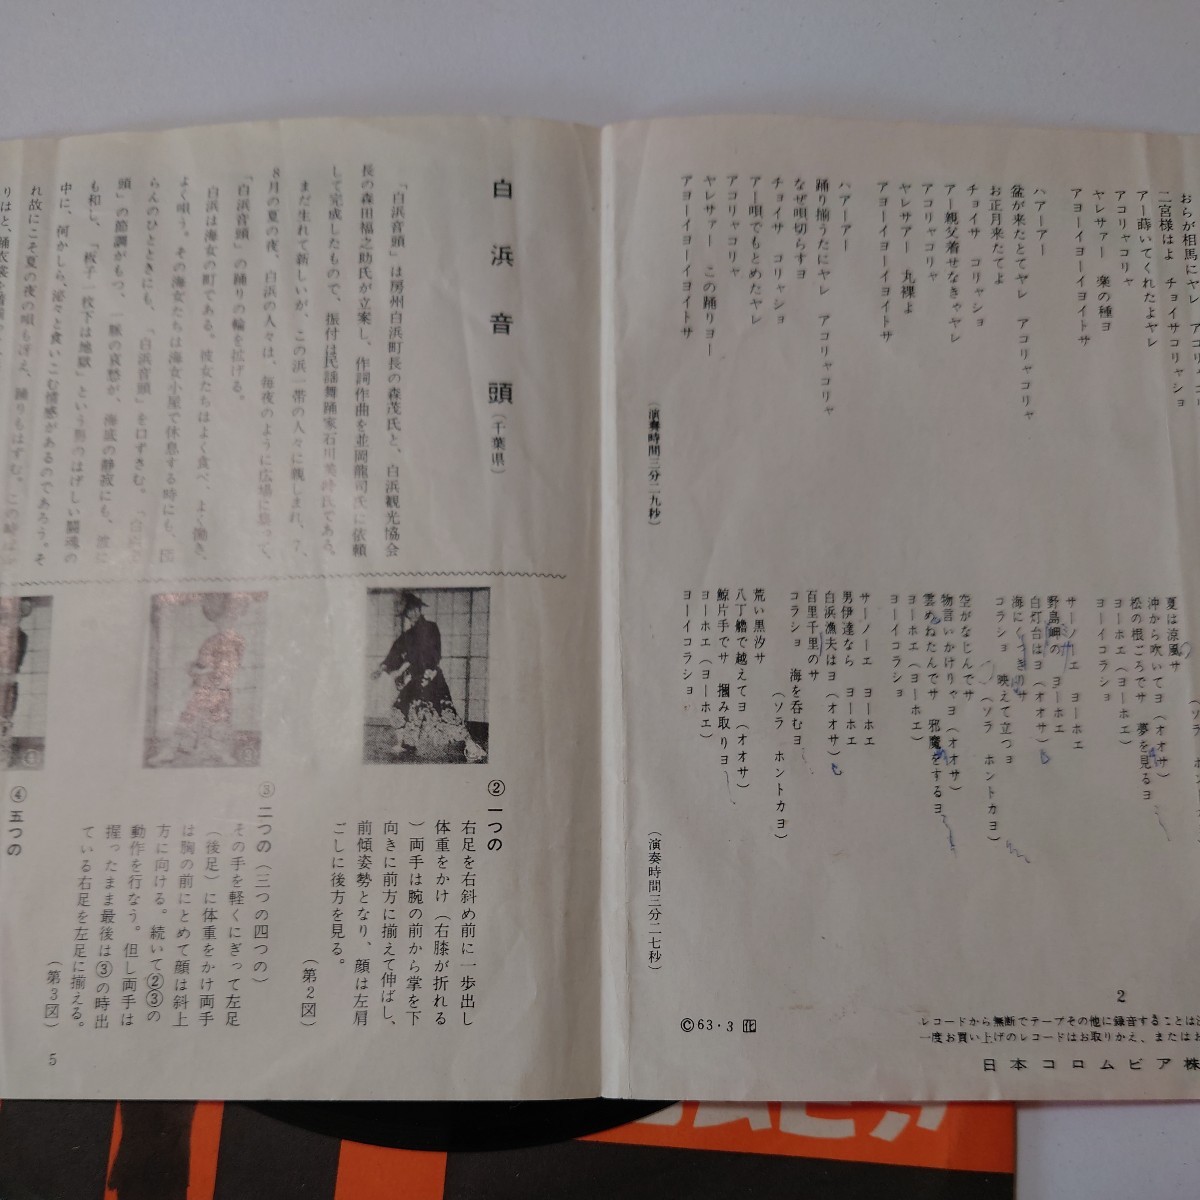 おらが相馬にヤレ
二宮様はよ　チョイサコリャショ
アー蒔いてくれたよヤレ
アコリャコリャ
ヤレサアー　楽の種ヨ
アヨーイヨーイヨイトサ
ハアーアー
盆が来たとてヤレ　アコリャコリャ
お正月来たてよ
チョイサ　コリャショ
アー親父着せなきゃヤレ
アコリャコリャ
ヤレサアー　丸裸よ
アヨーイヨーイヨイトサ
ハアーアー
踊り揃うたにヤレ　アコリャコリャ
なぜ唄切らすヨ
チョイサ　コリャショ
アー唄でもとめたヤレ
アコリャコリャ
ヤレサァー　この踊りヨー
アヨーイヨーイヨイトサ
（演奏時間三分二九秒）
夏は涼風サ
沖から吹いてヨ（オオサ）
松の根ごろでサ　夢を見るヨ
ヨーホエ（ヨーホエ）
ヨーイコラショ
サーノーエ　ヨーホエ
野島岬の　ヨーホエ
白灯台はヨ（オオサ）
海にくっきりサ
コラショ　映えて立つヨ
（ソラ　ホントカヨ）
空がなじんでサ
物言いかけりゃヨ（オオサ）
雲めねたんでサ　邪魔をするヨ
ヨーホエ（ヨーホエ）
ヨーイコラショ
サーノーエ　ヨーホエ
男伊達なら　ヨーホエ
白浜漁夫はヨ（オオサ）
百里千里のサ
コラショ　海を呑むヨ
（ソラ　ホントカヨ）
荒い黒汐サ
八丁艪で越えてヨ（オオサ）
鯨片手でサ　摑み取りヨ
ヨーホエ（ヨーホエ）
ヨーイコラショ
（演奏時間三分二七秒）
2
レコードから無断でテープその他に録音することは
一度お買い上げのレコードはお取りかえ、またはお
日本コロムビア株
Ⓒ63・3 化
白浜音頭（千葉県）
「白浜音頭」は房州白浜町長の森茂氏と、白浜観光協会
長の森田福之助氏が立案し、作詞作曲を並岡龍司氏に依頼
して完成したもので、振付は民謡舞踊家石川
まだ生れて新しいが、この浜一帯の人々に親しまれ、7、
8月の夏の夜、白浜の人々は、毎夜のように広場に集って、
「白浜音頭」の踊りの輪を拡げる。
白浜は海女の町である。彼女たちはよく食べ、よく働き、
よく唄う。その海女たちは海女小屋で休息する時にも、団
らんのひとときにも、「白浜音頭」を口ずさむ。
頭」の節調がもつ、一脈の哀愁が、海底の静寂にも、
も和し、「板子一枚下は地獄」という熱のはげしい闘魂の
中に、何かしら、沁々と食いこむ情感があるのであろう。そ
れ故にこそ夏の夜の唄もはずみ、踊りもはずむ。
②一つの
右足を右斜め前に一歩出し
体重をかけ（右膝が折れる
）両手は腕の前から掌を下
向きに前方に揃えて伸ばし、
前傾姿勢となり、顔は左肩
ごしに後方を見る。
（第2図）
③二つの（三つの四つの）
その手を軽くにぎって左足
（後足）に体重をかけ両手
は胸の前にとめて顔は斜上
方に向ける。続いて②③の
動作を行なう。但し両手は
握ったまま最後は③の時出
ている右足を左足に揃える。
（第3図）
④五つの
5